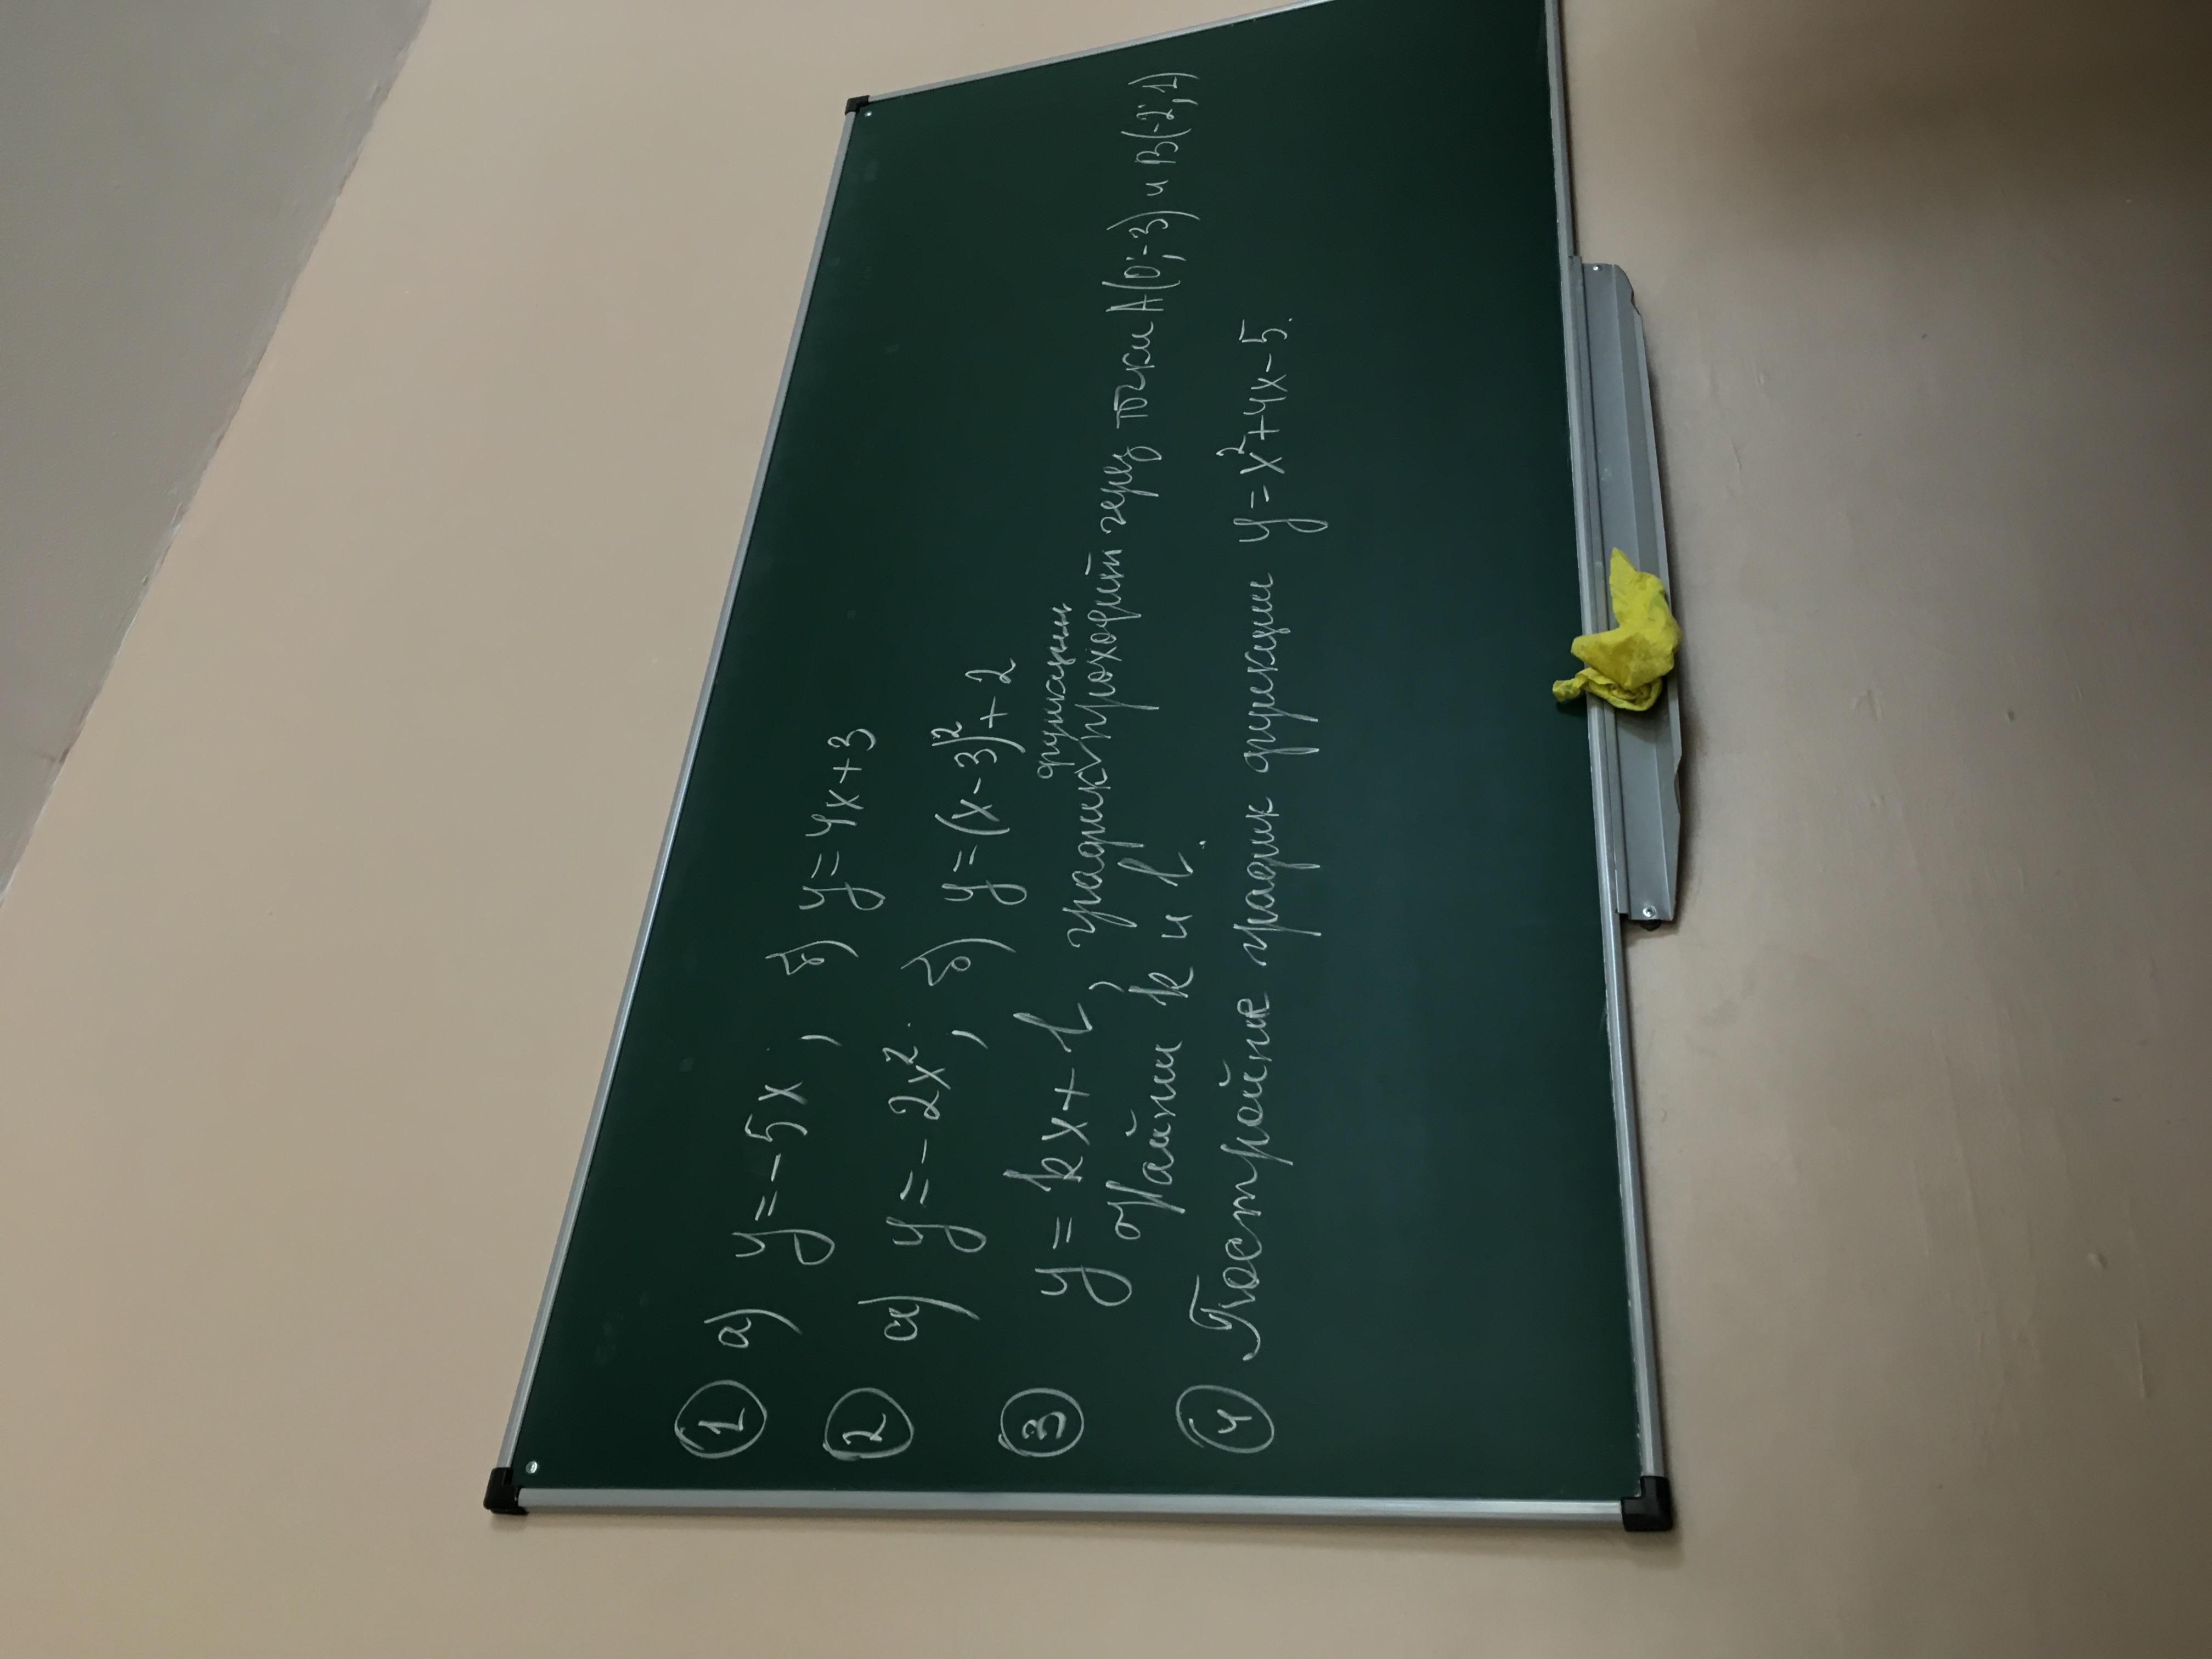 1 а) y = -5x ; б) y = 4x + 3
2 а) y = -2x² ; б) y = (x - 3)² + 2
функции
3 y = kx + b, график проходит через точки A(0; -3) и B(-2; 1)
найти k и b.
4 Постройте график функции y = x² + 4x - 5.